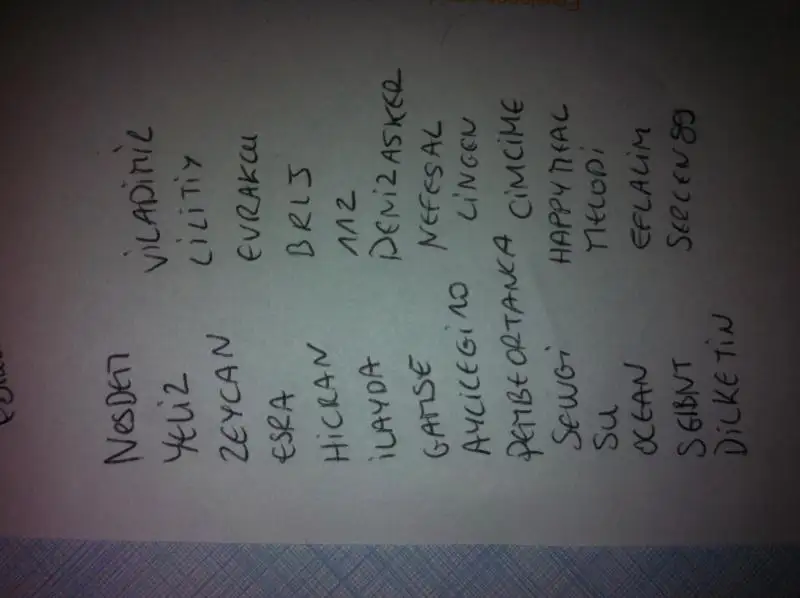 NESDEM VİLADİMİL
YELİZ LİLİTİY
ZEYCAN EVRAKCU
ESRA BRIJ
HİCRAN 112
İLAYDA DENİZASKER
GAMSE NEFESAL
AYCILEGİ10 LİNGEN
PEMBEORTANCA CİMCİME
SEWGİ HAPPYMEAL
SU MELODİ
OCEAN EFLALIM
SGIBNT SERCEN89
DİLKETİN